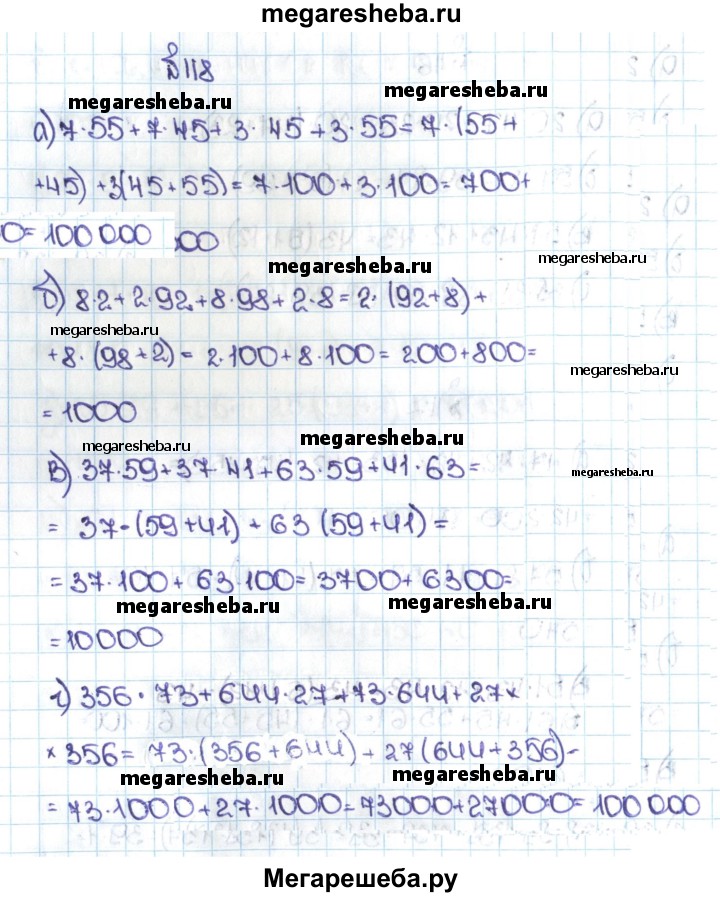 megaresheba.ru
№118
megaresheba.ru
megaresheba.ru
а) 7·55+7·45+3·45+3·55=7·(55+
+45)+3(45+55)=7·100+3·100=700+
0=100 000 00
megaresheba.ru
megaresheba.ru
б) 8·2+2·92+8·98+2·8=2·(92+8)+
megaresheba.ru
+8·(98+2)=2·100+8·100=200+800=
megaresheba.ru
=1000
megaresheba.ru
megaresheba.ru
в) 37·59+37·41+63·59+41·63=
megaresheba.ru
= 37·(59+41)+63(59+41)=
=37·100+63·100=3700+6300=
megaresheba.ru
megaresheba.ru
=10000
г) 356·73+644·27+73·644+27×
×356=73·(356+644)+27(644+356)-
megaresheba.ru
megaresheba.ru
=73·1000+27·1000=73000+27000=100 000
Мегарешеба.ру